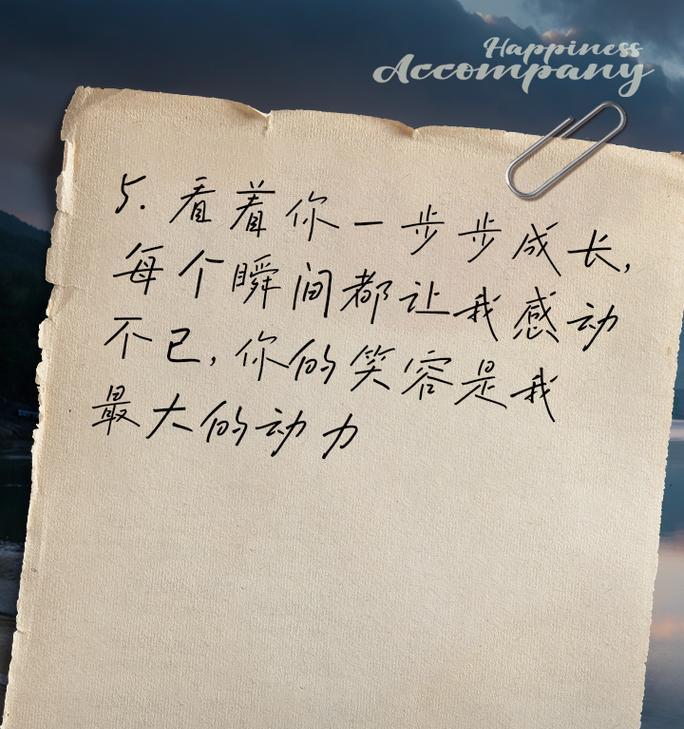 Happiness
Accompany
5. 看着你一步步成长,
每个瞬间都让我感动
不已,你的笑容是我
最大的动力